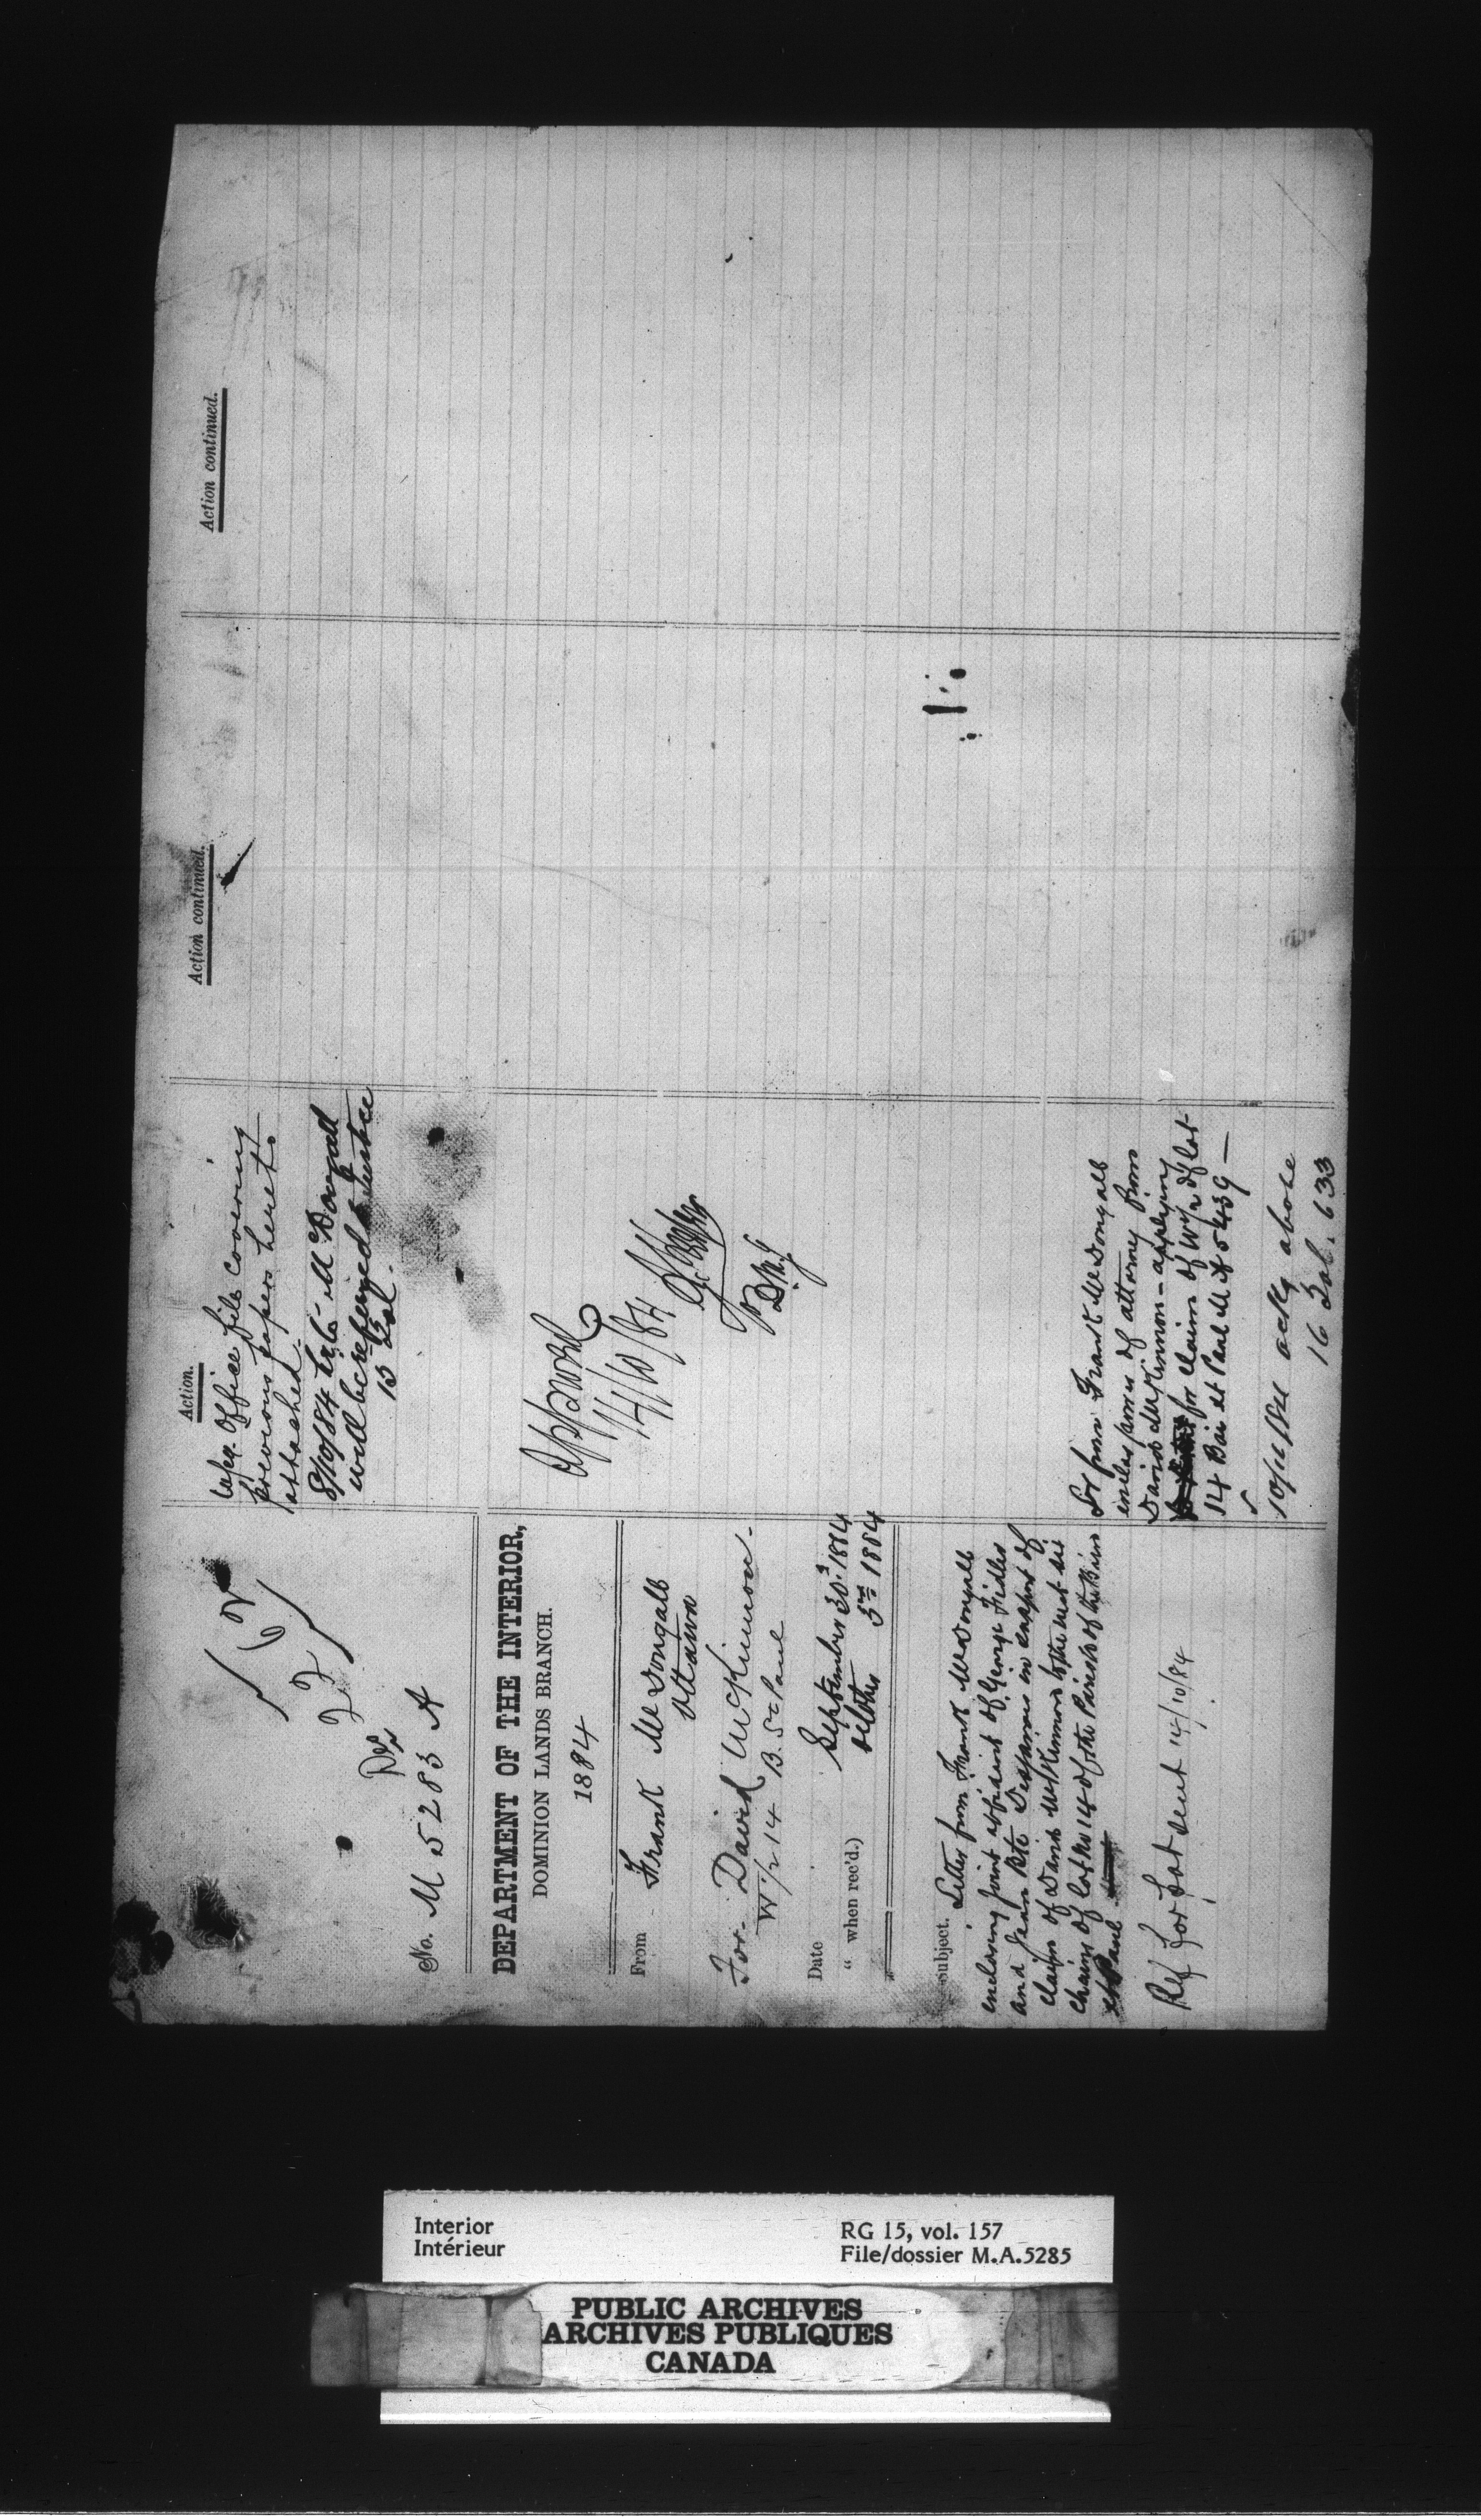 62
22
No. M 5283 A
DEPARTMENT OF THE INTERIOR,
DOMINION LANDS BRANCH.
1884
From Frank McDougall
Ottawa
For David McKinnon.
W 1/2 14 B. St Paul
Date September 30. 1884
" when rec'd.) October 3rd 1884
Subject. Letter from Frank McDougall
enclosing joint affidavit of George Fidler
and Jean Bte in support of
claim of David McKinnon to the west six
chains of lot No 14 of the Parish of the Baie
St Paul
Ref for Pat sent 14/10/84
Action.
Wpg. Office file covering
previous papers hereto
attached.
8/10/84 McDougall
will be referred to Justice
13 Fol.
Approved
14/10/84
Let from Frank McDougall
encles power of attorney from
David McKinnon - applying
for claim of W 1/2 of lot
14 Bai St Paul M A 5439 —
10/11/84 ackg above
16 Fol. 633
Action continued.
Action continued.
Interior
Intérieur
RG 15, vol. 157
File/dossier M.A.5285
PUBLIC ARCHIVES
ARCHIVES PUBLIQUES
CANADA